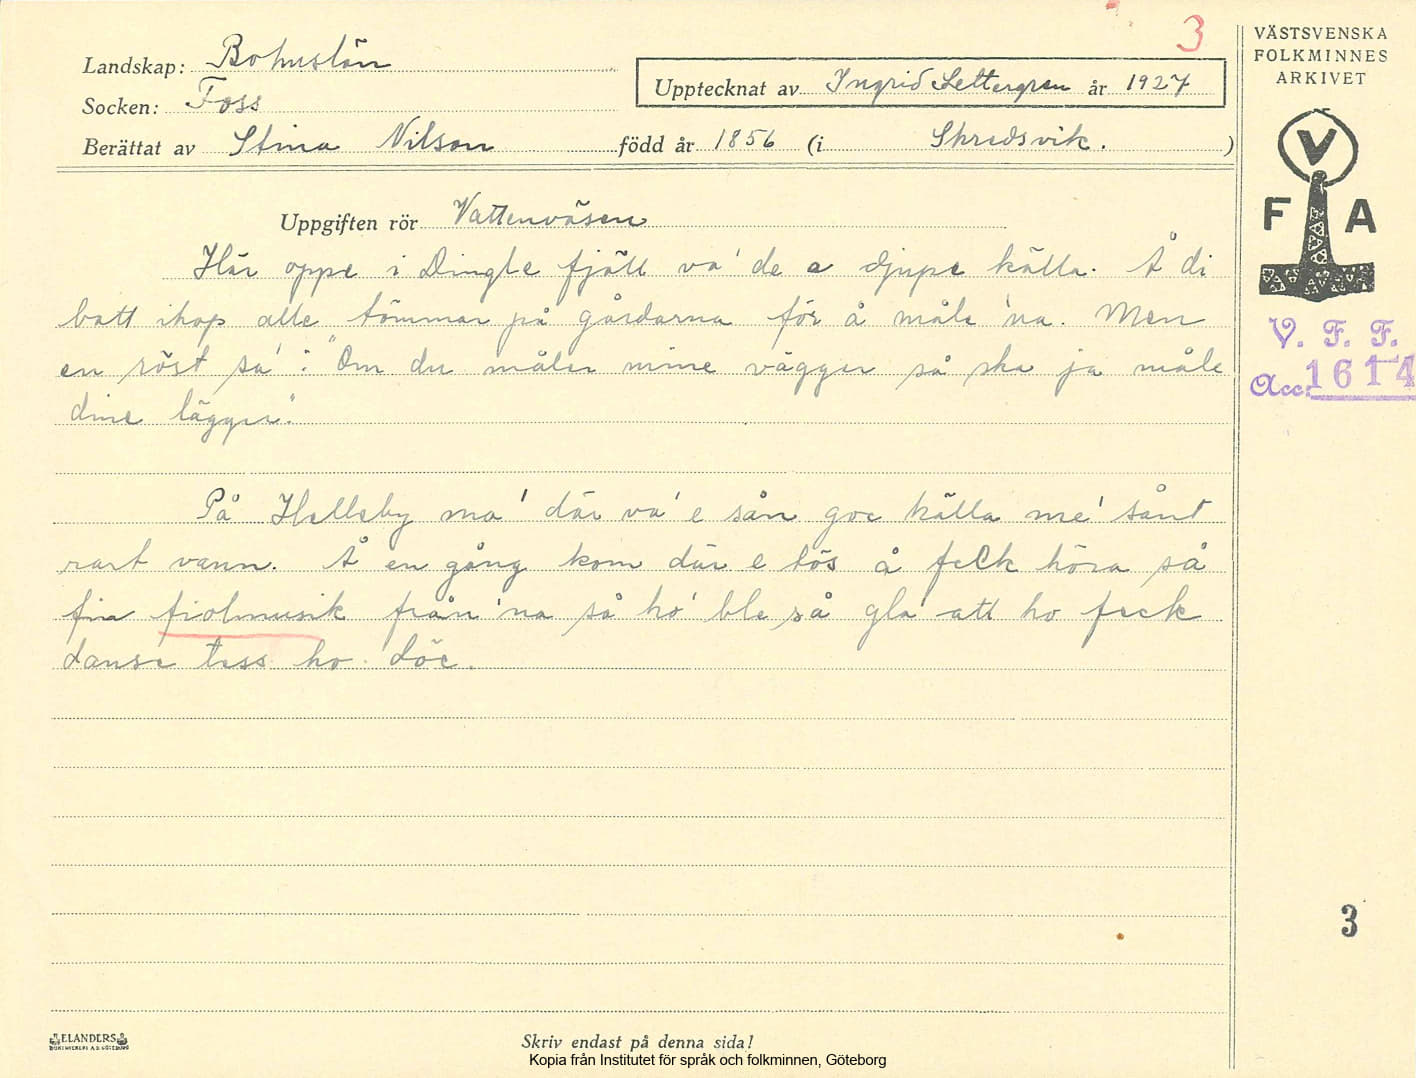 3
VÄSTSVENSKA
FOLKMINNES
ARKIVET
Landskap: Bohuslän
Upptecknat av Ingrid Settergren år 1927
Socken: Foss
Berättat av Stina Nilson född år 1856 (i Skredsvik. )
V
F A
Uppgiften rör Vattenväsen
Här oppe i Dingle fjäll va' de e djupe källa. Å di
batt ihop alle tömmar på gårdarna för å måle 'na. Men
en röst sa': "Om du måler mine vägger så ska ja måle
dine lägger".
V. F. F.
Acc: 1614
På Helleby ma' där va' e sån goe källa me' sånt
rart vann. Å en gång kom där e tös å feck höra så
fin fiolmusik från 'na så ho' ble så gla' att ho feck
danse tess ho döe.
3
ELANDERS
BOKTRYCKERI A.B. GÖTEBORG
Skriv endast på denna sida!
Kopia från Institutet för språk och folkminnen, Göteborg